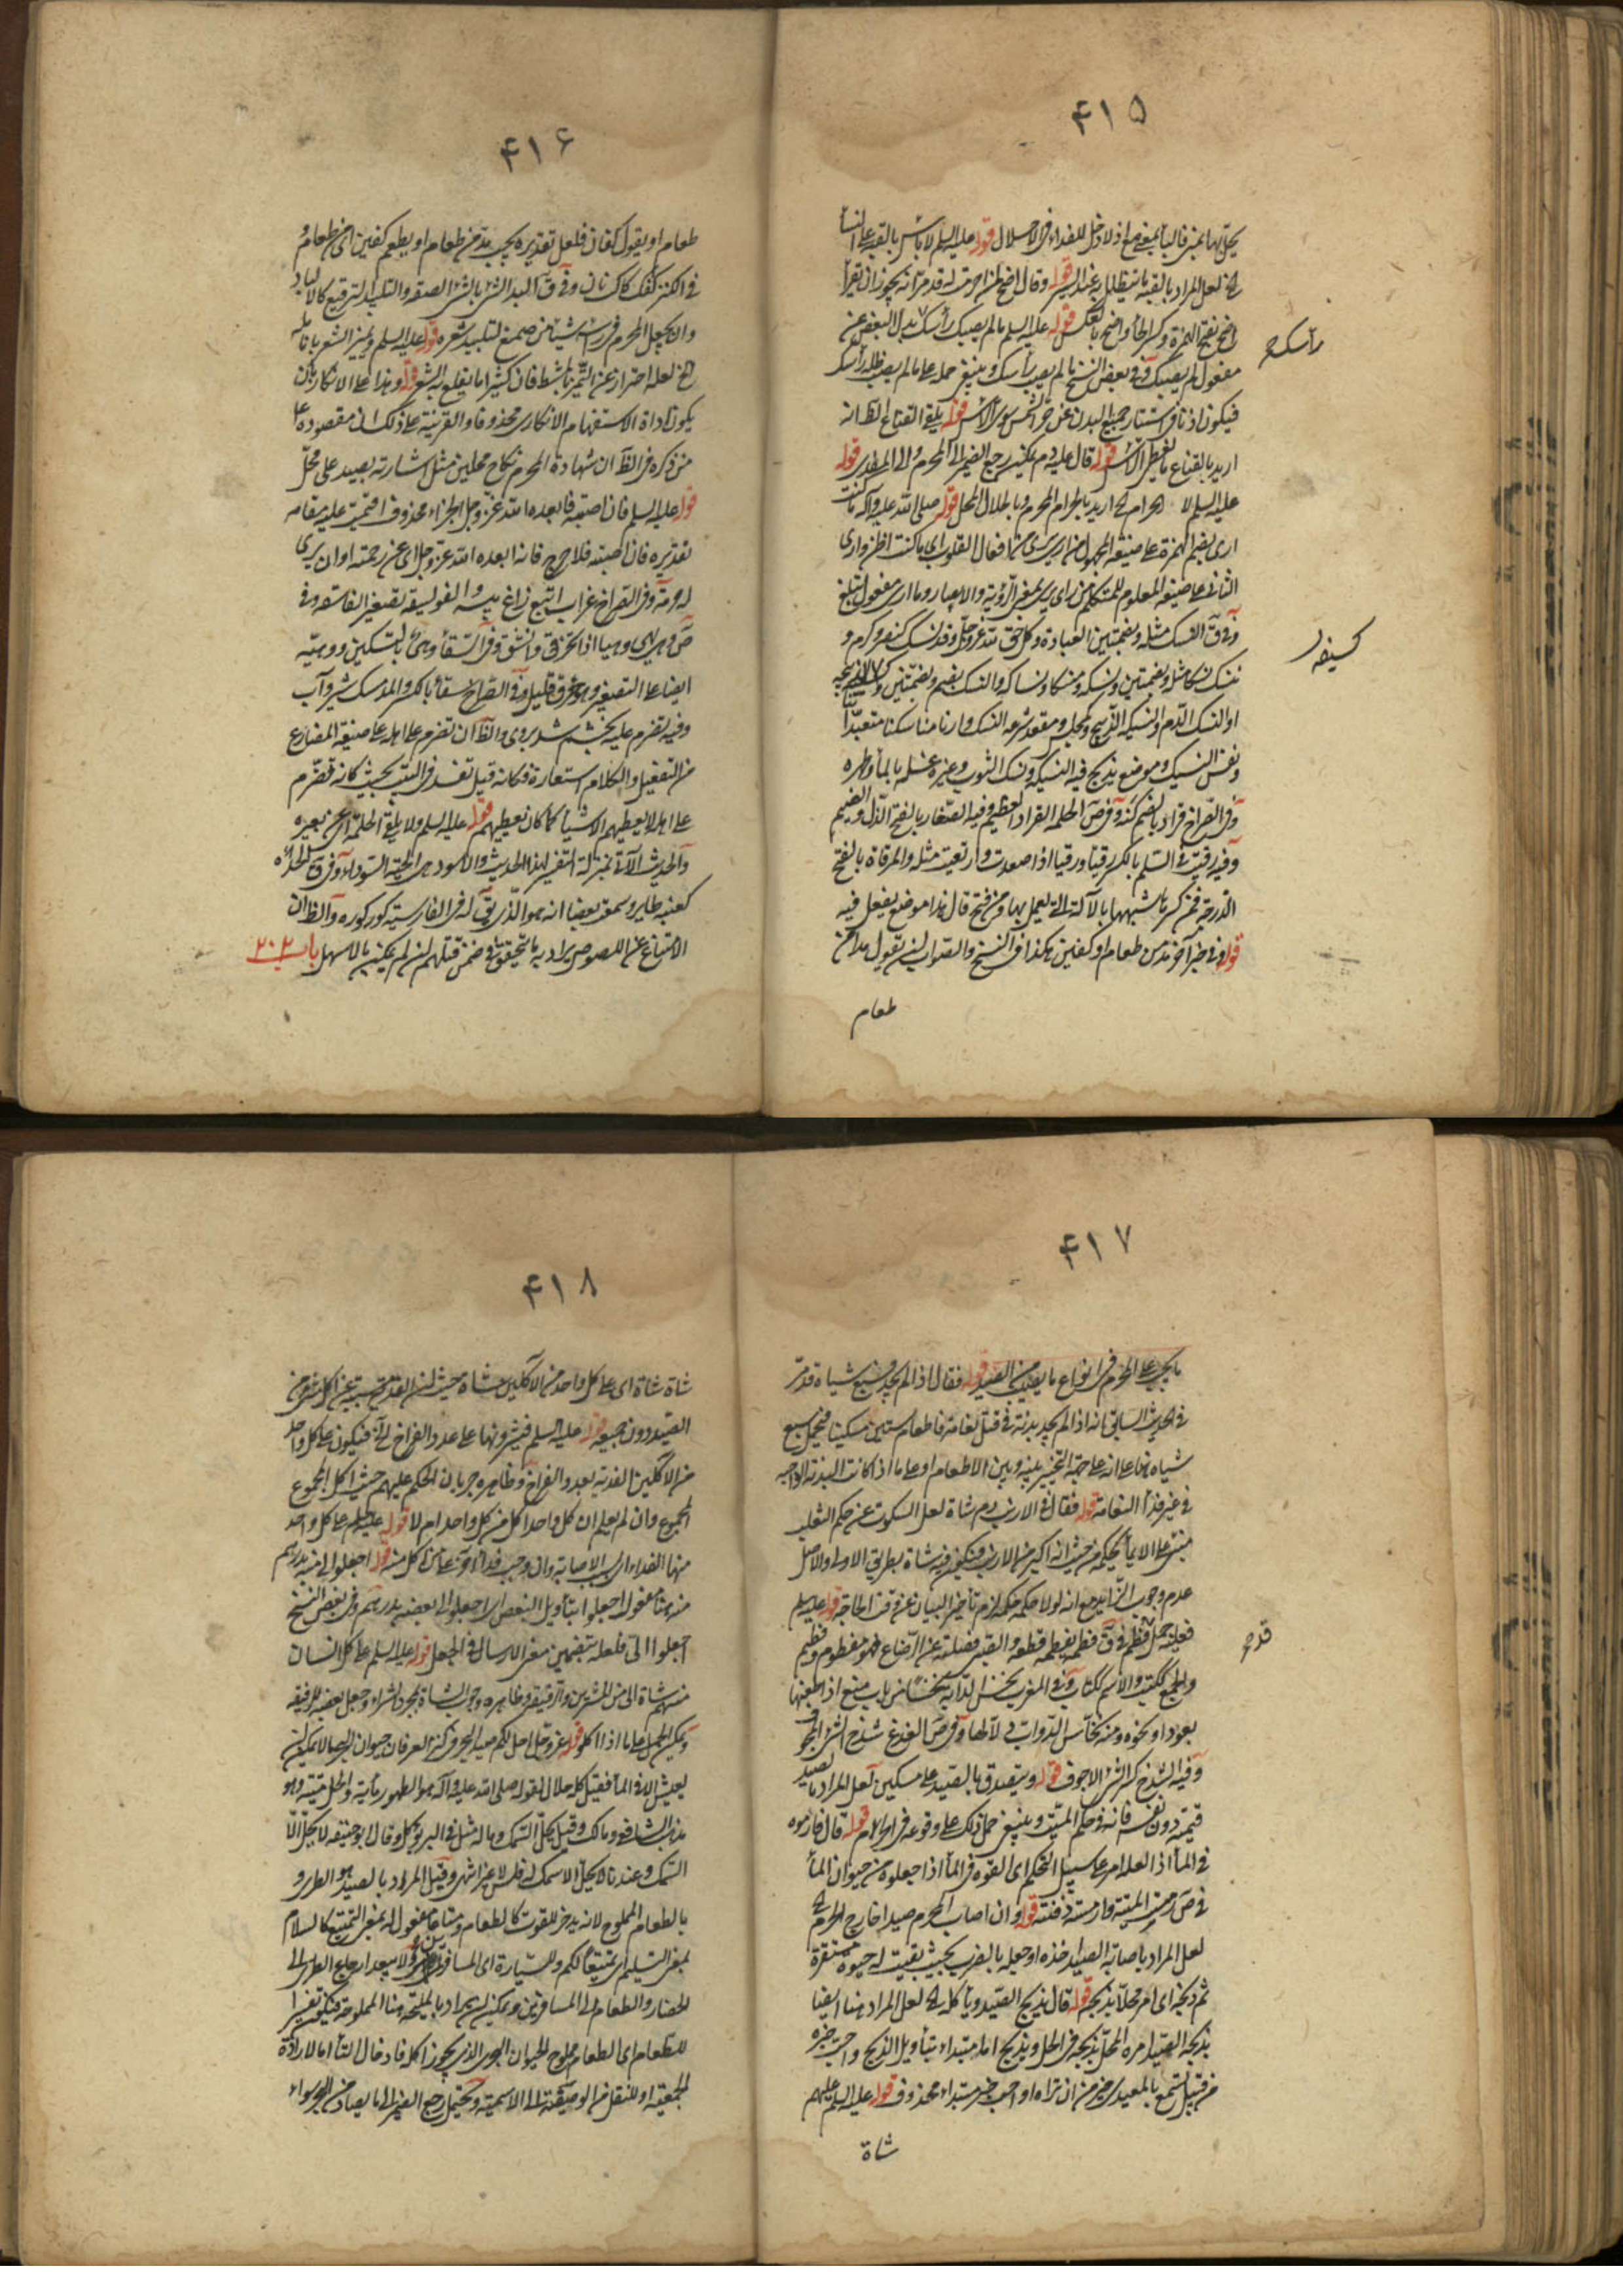 ۴۱۵
يحل بها بمنزلة البأ بمعنى مع اذ لا دخل للفداء فى الاحلال قوله عليه السلم لا بأس بالقبة على النسا
لعل المراد بالقبة ما يتظلل به عند السير قوله وقال اضح لمن احرمت له قد مر انه يجوز ان يقرأ
اضح بفتح الهمزة وكسر الحاء واضح بالعكس قوله عليه السلم ما لم يصبك رأسك بدل البعض عن
رأسك
مفعول لم يصبك وفى بعض النسخ ما لم يصب رأسك وينبغى حمله على ما لم يصب ظله رأسك
فيكون اذنا فى استتار جميع البدن عن حر الشمس سوى الرأس قوله يلقى القناع الظ انه
اريد بالقناع ما يغطى الرأس قوله قال عليه دم يمكن رجع الضمير الى المحرم والى المضطر قوله
عليه السلم لا الحرام اريد بالحرام المحرم وبالحلال المحل قوله صلى الله عليه وآله ما كنت
ارى بضم الهمزة على صيغة المجهول من ارى يرى من افعال القلوب اى ما كنت اظن وارى
الثانى على صيغة المعلوم للمتكلم من رأى يرى بمعنى الرؤية والابصار وما ارى مفعول تبلغ
وفى ق النسك مثلثة وبضمتين العبادة وكل حق لله عز وجل وقد نسك كنصر وكرم و
تنسك نسكا مثلثة وبضمتين ونسكة ومنسكا ونساكة والنسك بضم وبضمتين وكسفينة الذبيحة
كسيفة
او النسك الدم والنسيكة الذبح وكمجلس ومقعد شرعة النسك وارنا مناسكنا متعبداتنا
ونفس النسك وموضع يذبح فيه النسيكة ونسك الثوب وغيره غسله بالمأ وطهره
وفى الصراح قراد بالضم كنه وفى ص الحلمة القراد العظيم وفيه الصغار بالفتح الذل والضيم
وفيه رقيت فى السلم بالكسر رقيا ورقيا اذا صعدت وارتقيت مثله والمرقاة بالفتح
الدرجة فمن كسر شبهها بالآلة التى يعمل بها ومن فتح قال هذا موضع يفعل فيه
قوله وفى خبر آخر مد من طعام او كفين هكذا فى النسخ والصواب ان يقول مدا من
طعام
۴۱۶
طعام او يقول كفان فلعل تقديره يجب مد من طعام او يطعم كفين اى من طعام و
فى الكنز كفك كاك نان وفى ق البد الشئ بالشئ الصقه والتلبيد الترقيع كالالباد
وان يجعل المحرم فى رأسه شيئا من صمغ لتلبيد شعره قوله عليه السلم ويميز الشعر بانامله
لعله احتراز عن التميز بالمشط فان كثيرا ما يقلع به الشعر قوله وهذا على الانكار بان
يكون اداة الاستفهام الانكارى محذوفا والقرينة على ذلك ان مقصوده على
من ذكره فى الظ ان شهادة المحرم نكاح محلين مثل اشارته بصيد على محل
قوله عليه السلم فان اصبته فابعده الله عز وجل الجزاء محذوف اقيمت عليه مقامه
تقديره فان اصبته فلا حرج فانه ابعده الله عز وجل اى عن رحمته او ان يرى
له حرمة وفى الصراح غراب ابقع زاغ پيسه الفويسقة تصغير الفاسقة وفى
ص وهى يهى وهيا اذا تخرق وانشق وفى السقأ وهى بالتسكين ووهية
ايضا على التصغير وهو خرق قليل وفى الصراح سقأ بالكسر والمد مشك شير وآب
وفيه تضرم عليه بخشم شد بر وى والظ ان تضرم على اهله على صيغة المضارع
من التفعيل والكلام استعارة فكانه قيل تفسد فى البيت بحيث كانه تضرم
على اهله لا يعطيهم الاشيأ كما كان يعطيهم قوله عليه السلم ولا يلقى الحلمة اى عن بعيره
والحديث الآتى بمنزلة التفسير لهذا الحديث والاسود هى الحية السوداء وفى ق الحدأة
كعنبة طاير وسمعت بعضا انه هو الذى يق له فى الفارسية كوركوره والظ ان
الامتناع عن اللصوص يراد به ما يتحقق فى ضمن قتلهم ان لم يمكن بالاسهل باب ۲۰۲
۴۱۷
ما يجب على المحرم فى انواع ما يصيب من الصيد قوله فقال اذا لم يجد فسبع شياه قد مر
فى الحديث السابق انه اذا لم يجد بدنة فى قتل نعامة فاطعام ستين مسكينا فيحمل سبع
شياه هنا على انه على جهة التخيير بينه وبين الاطعام او على ما اذا كانت البدنة الواجبة
فى غير فداء النعامة قوله فقال فى الارنب دم شاة لعل السكوت عن حكم الثعلب
مبنى على الايمأ بحكمه من حيث انه اكبر من الارنب فيكون فيه شاة بطريق الاولى والاصل
عدم وجوب الزايد مع انه لولا حكمه حكمه لزم تأخير البيان عن وقت الحاجة قوله عليه السلم
فعليه حمل فطيم فى ق فطمه يفطمه قطعه والصبى فصله عن الرضاع فهو مفطوم وفطيم
قدح
والجمع ككتب والاسم ككتاب وفى المغرب نخس الدابة نخسا من باب منع اذا طعنها
بعود او نحوه ومنه نخاس الدواب دلالها وفى ص الفدغ شدخ الشئ المجوف
وفيه الشدخ كسر الشئ الاجوف قوله ويتصدق بالصيد على مسكين لعل المراد بالصيد
قيمته دون نفسه فانه فى حكم الميتة وينبغى حمل ذلك على وقوعه فى الحرام قوله قال فارموه
فى المأ اذا العلة امر على سبيل التحكم اى القوه فى المأ اذا جعلوه من حيوان المأ
فى ص رمست الميت وارمسته دفنته قوله وان اصاب المحرم صيدا خارج الحرم
لعل المراد باصابة الصيد اخذه او جعله بالضرب بحيث بقيت له حيوة مستقرة
ثم ذبحه اى امر محلا بذبحه قوله قال يذبح الصيد ويأكله لعل المراد هنا ايضا
بذبحه الصيد امره المحل بذبحه فى الحل ويذبح اما مبتداء بتأويل الذبح واحب خبره
من قبيل تسمع بالمعيدى خير من ان تراه او احب خبر مبتداء محذوف قوله عليه السلم عليهم
شاة
۴۱۸
شاة شاة اى على كل واحد من الآكلين شاة حيث ان الفدية مسببة عن اكل شئ من
الصيد دون جميعه قوله عليه السلم فيشترونها على عدد الفراخ فيكون على كل واحد
من الآكلين الفدية بعدد الفراخ وظاهره جريان الحكم عليهم حيث اكل المجموع
المجموع وان لم يعلم ان كل واحد اكل من كل واحد ام لا قوله عليه السلم على كل واحد
منهما الفداء اى بسبب الاصابة وان وجب فداء آخر على من اكل منه قوله اجعلوا لى منه بدرهم
منه هنا مفعول اجعلوا بتأويل البعض اى اجعلوا لى بعضه بدرهم وفى بعض النسخ
اجعلوا الى فلعله بتضمين معنى الارسال فى الجعل قوله عليه السلم على كل انسان
منهم شاة اى من المشترين والرفيق وظاهره وجوب الشاة بمجرد الشراء وجعل بعضه للرفيقه
ويمكن الحمل على ما اذا اكلوا قوله عز وجل احل لكم صيد البحر فى كنز العرفان حيوان البحر ما لا يمكن ان
يعيش الا فى المأ فقيل كله حلال لقوله صلى الله عليه وآله هو الطهور مأيه والحل ميتته وهو
مذهب الشافعى ومالك وقيل يحل السمك وماله مثل فى البر يؤكل وقال ابو حنيفة لا يحل الا
السمك وعندنا لا يحل الا سمك له فلس لا غير انتهى وقيل المراد بالصيد هو الطرى و
بالطعام المملوح لانه يدخر للقوت كالطعام ومتاعا مفعول له بمعنى التمتيع كالسلام
بمعنى التسليم اى تمتيعا لكم وللسيارة اى المسافرين ولا يبعد ارجاع الطرى الى
الحضار والطعام الى المسافرين ويمكن ان يراد بالمليحة هنا المملوحة فيكون تفسيرا
للطعام اى الطعام مملوح الحيوان البحرى الذى يجوز اكله فادخال التأ اما لارادة
الجمعية او للنقل من الوصفية الى الاسمية ويحتمل رجع الضمير الى ما يصاد من البحر سواء